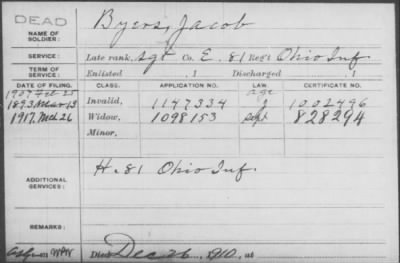 DEAD
NAME OF SOLDIER: Byers, Jacob
SERVICE: Late rank, Sgt Co. E. 81 Reg't Ohio Inf.
TERM OF SERVICE: Enlisted , 1 Discharged , 1
DATE OF FILING. CLASS. APPLICATION NO. LAW. CERTIFICATE NO.
1907 Feb 25 age
1893 Mar 13 Invalid, 1147334 J 1002496
1917, 26 Widow, 1098153 Sept 828294
Minor,
ADDITIONAL SERVICES: H. 81 Ohio Inf.
REMARKS:
Died Dec 26, 1910, at